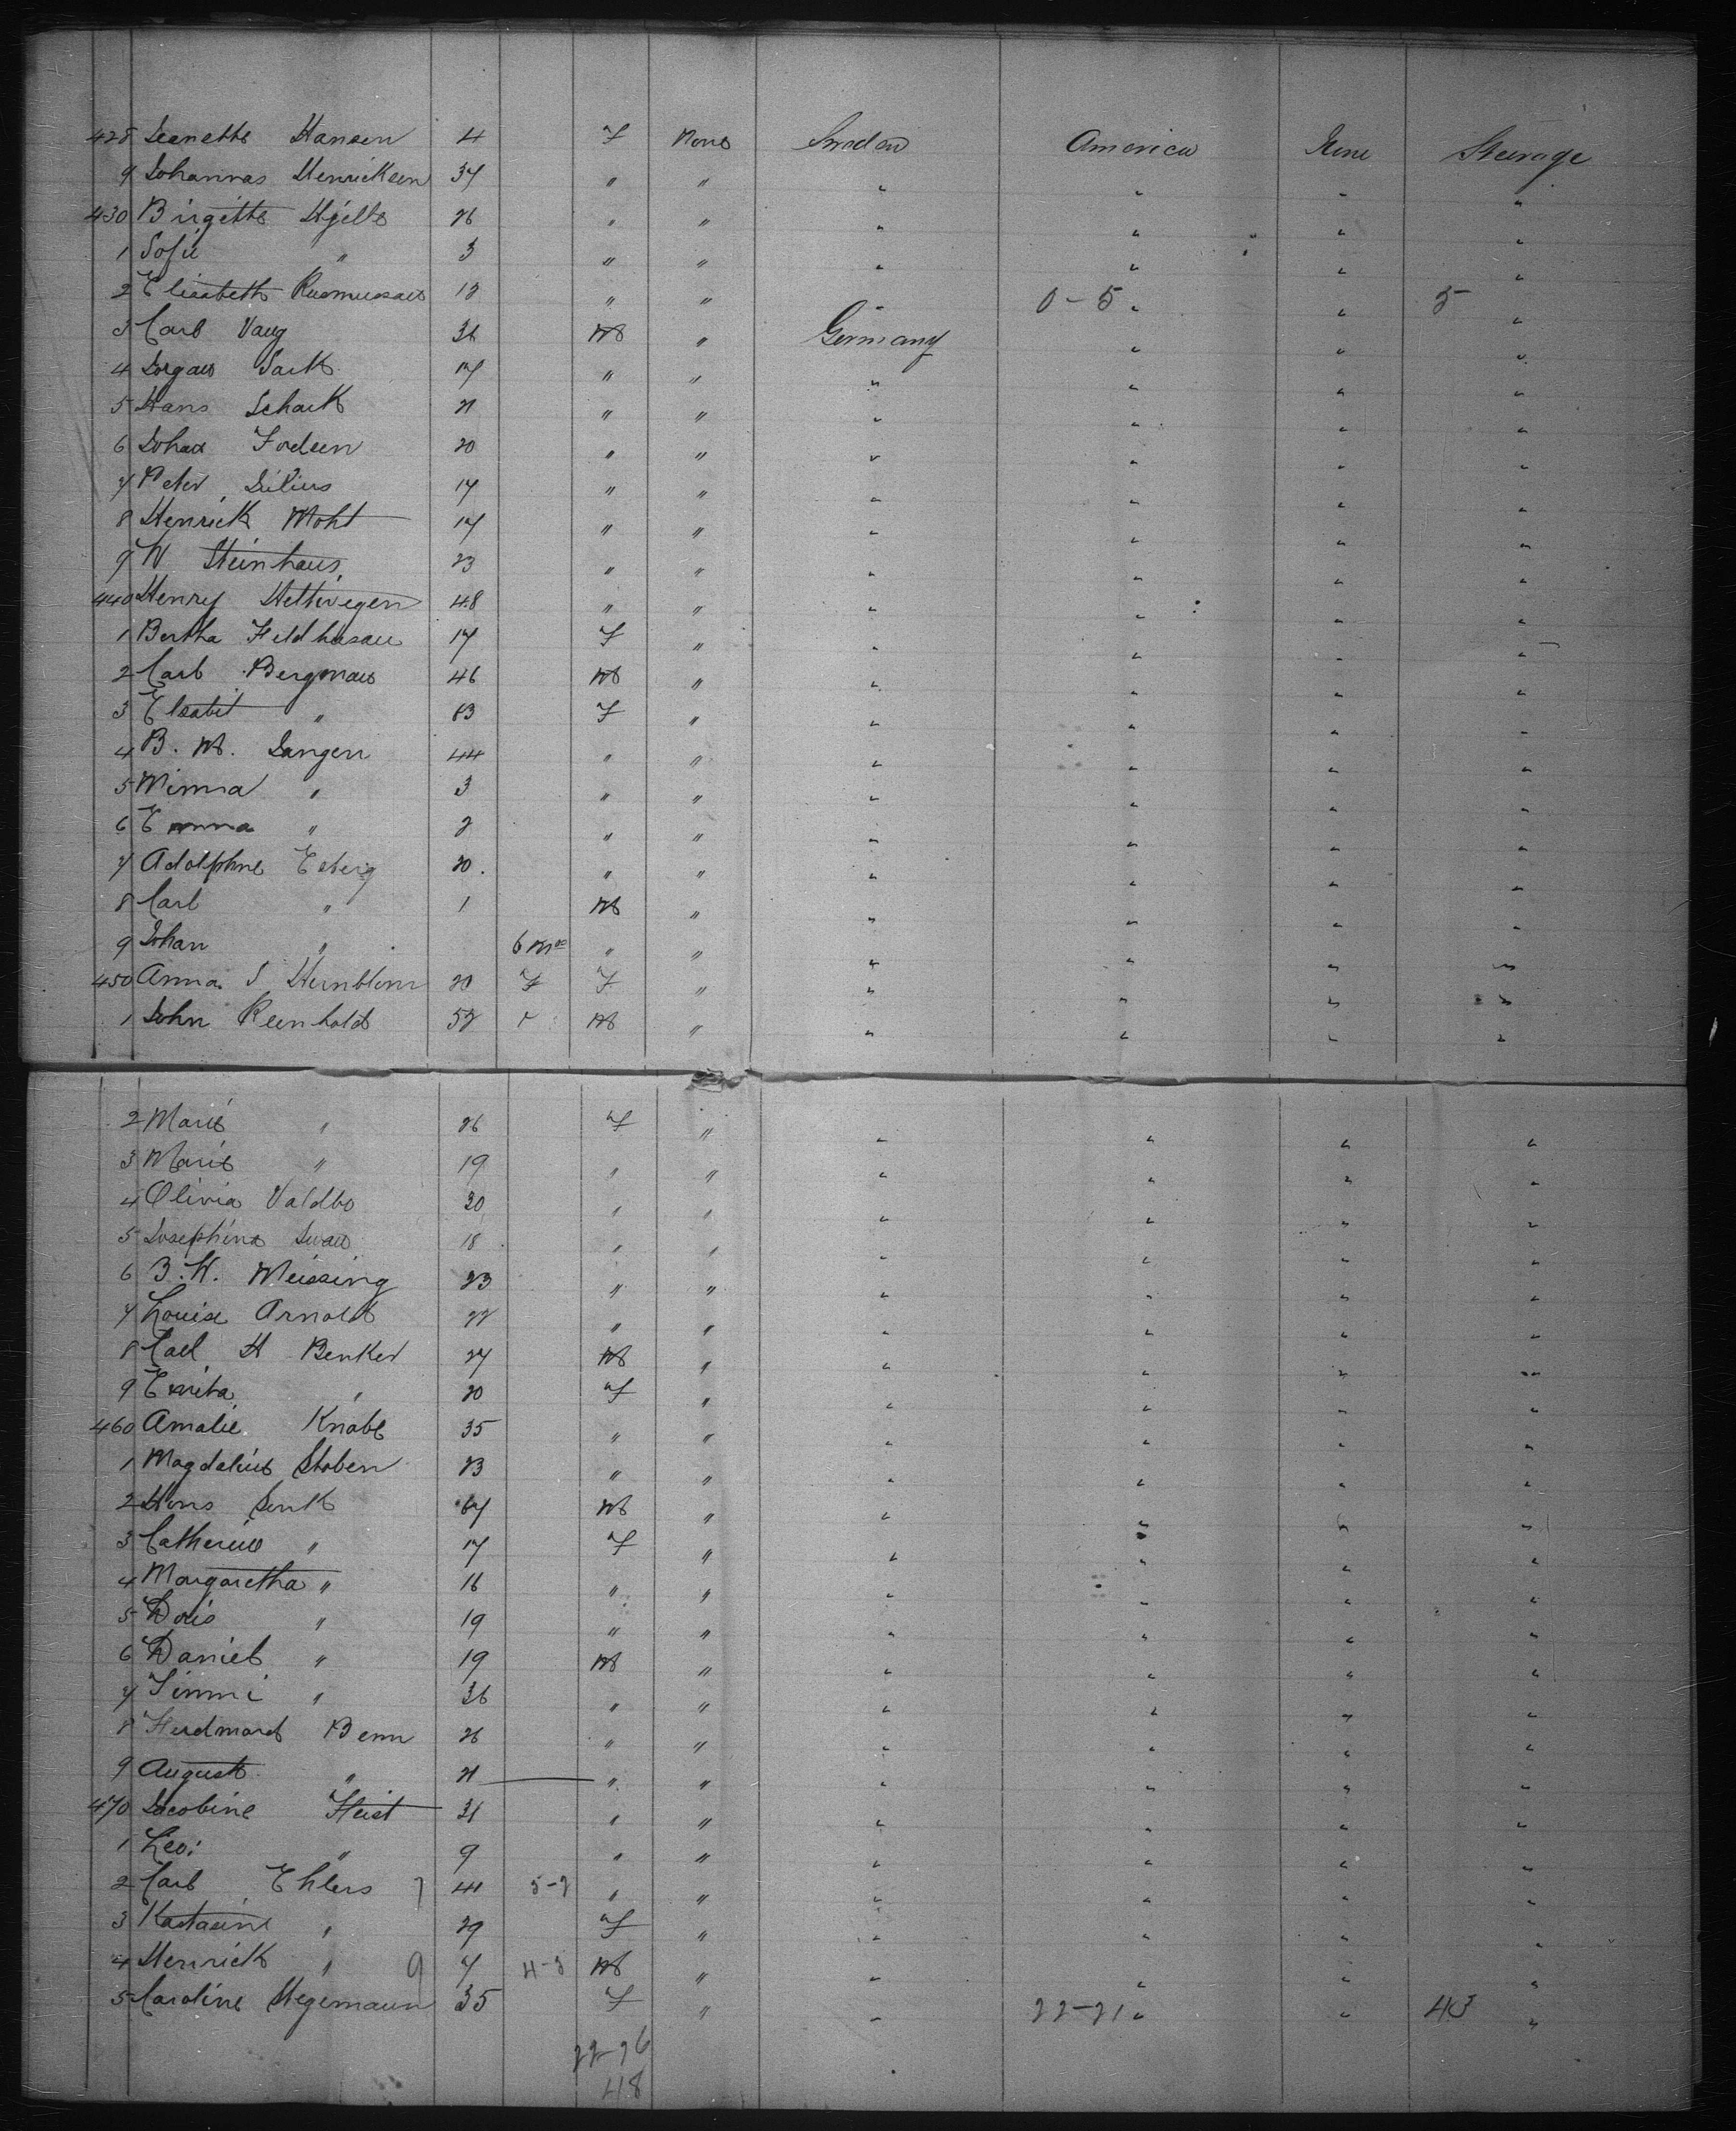 428 Jeanette Hansen 4 F None Sweden America None Steerage
9 Johannas Henricksen 37 " " " " " "
430 Birgitte Hjelte 26 " " " " " "
1 Sofie " 3 " " " " " "
2 Elisabeth Rasmussen 12 " " " 0-5 " " 5 "
3 Carl Vang 36 M " Germany " " "
4 Jorgan Sack 17 " " " " " "
5 Hans Schack 21 " " " " " "
6 Johan 20 " " " " " "
7 Peter Julius 17 " " " " " "
8 Henrick Moht 17 " " " " " "
9 W. Steinhaus 23 " " " " " "
440 Henry Hettwegen 48 " " " " " "
1 Bertha Feldhusan 17 F " " " " "
2 Carl Bergman 46 M " " " " "
3 Elsabet " 83 F " " " " "
4 B. M. Jangen 44 " " " " " "
5 Minna " 3 " " " " " "
6 Emma " 2 " " " " " "
7 Adolphine Esberg 20 " " " " " "
8 Carl " 1 M " " " " "
9 Johan " 6 Mos " " " " " "
450 Anna S 20 F F " " " " "
1 John Reenhold 52 M " " " " "
2 Marie " 26 F " " " " "
3 Marie " 19 " " " " " "
4 Olivia Valdbo 30 " " " " " "
5 Josephine 18 " " " " " "
6 B. W. Meissing 23 " " " " " "
7 Louise Arnold 22 " " " " " "
8 Carl H Benker 27 M " " " " "
9 20 F " " " " "
460 Amalie Knabe 35 " " " " " "
1 Magdaline Staben 23 " " " " " "
2 Hans Junk 67 M " " " " "
3 Catherine " 17 F " " " " "
4 Margaretha " 16 " " " " " "
5 Doris " 19 " " " " " "
6 Daniel " 19 M " " " " "
7 Timmi " 36 " " " " " "
8 Ferdmand Benn 26 " " " " " "
9 August " 21 " " " " " "
470 Jacobine Heist 31 " " " " " "
1 Levi " 9 " " " " " "
2 Carl Ehlers 7 41 5-2 " " " " " "
3 Katarine " 29 F " " " " "
4 Henrick " 9 7 4-3 M " " " " "
5 Caroline Hegemann 35 F " " 22-21 " " 43 "
22-26
48